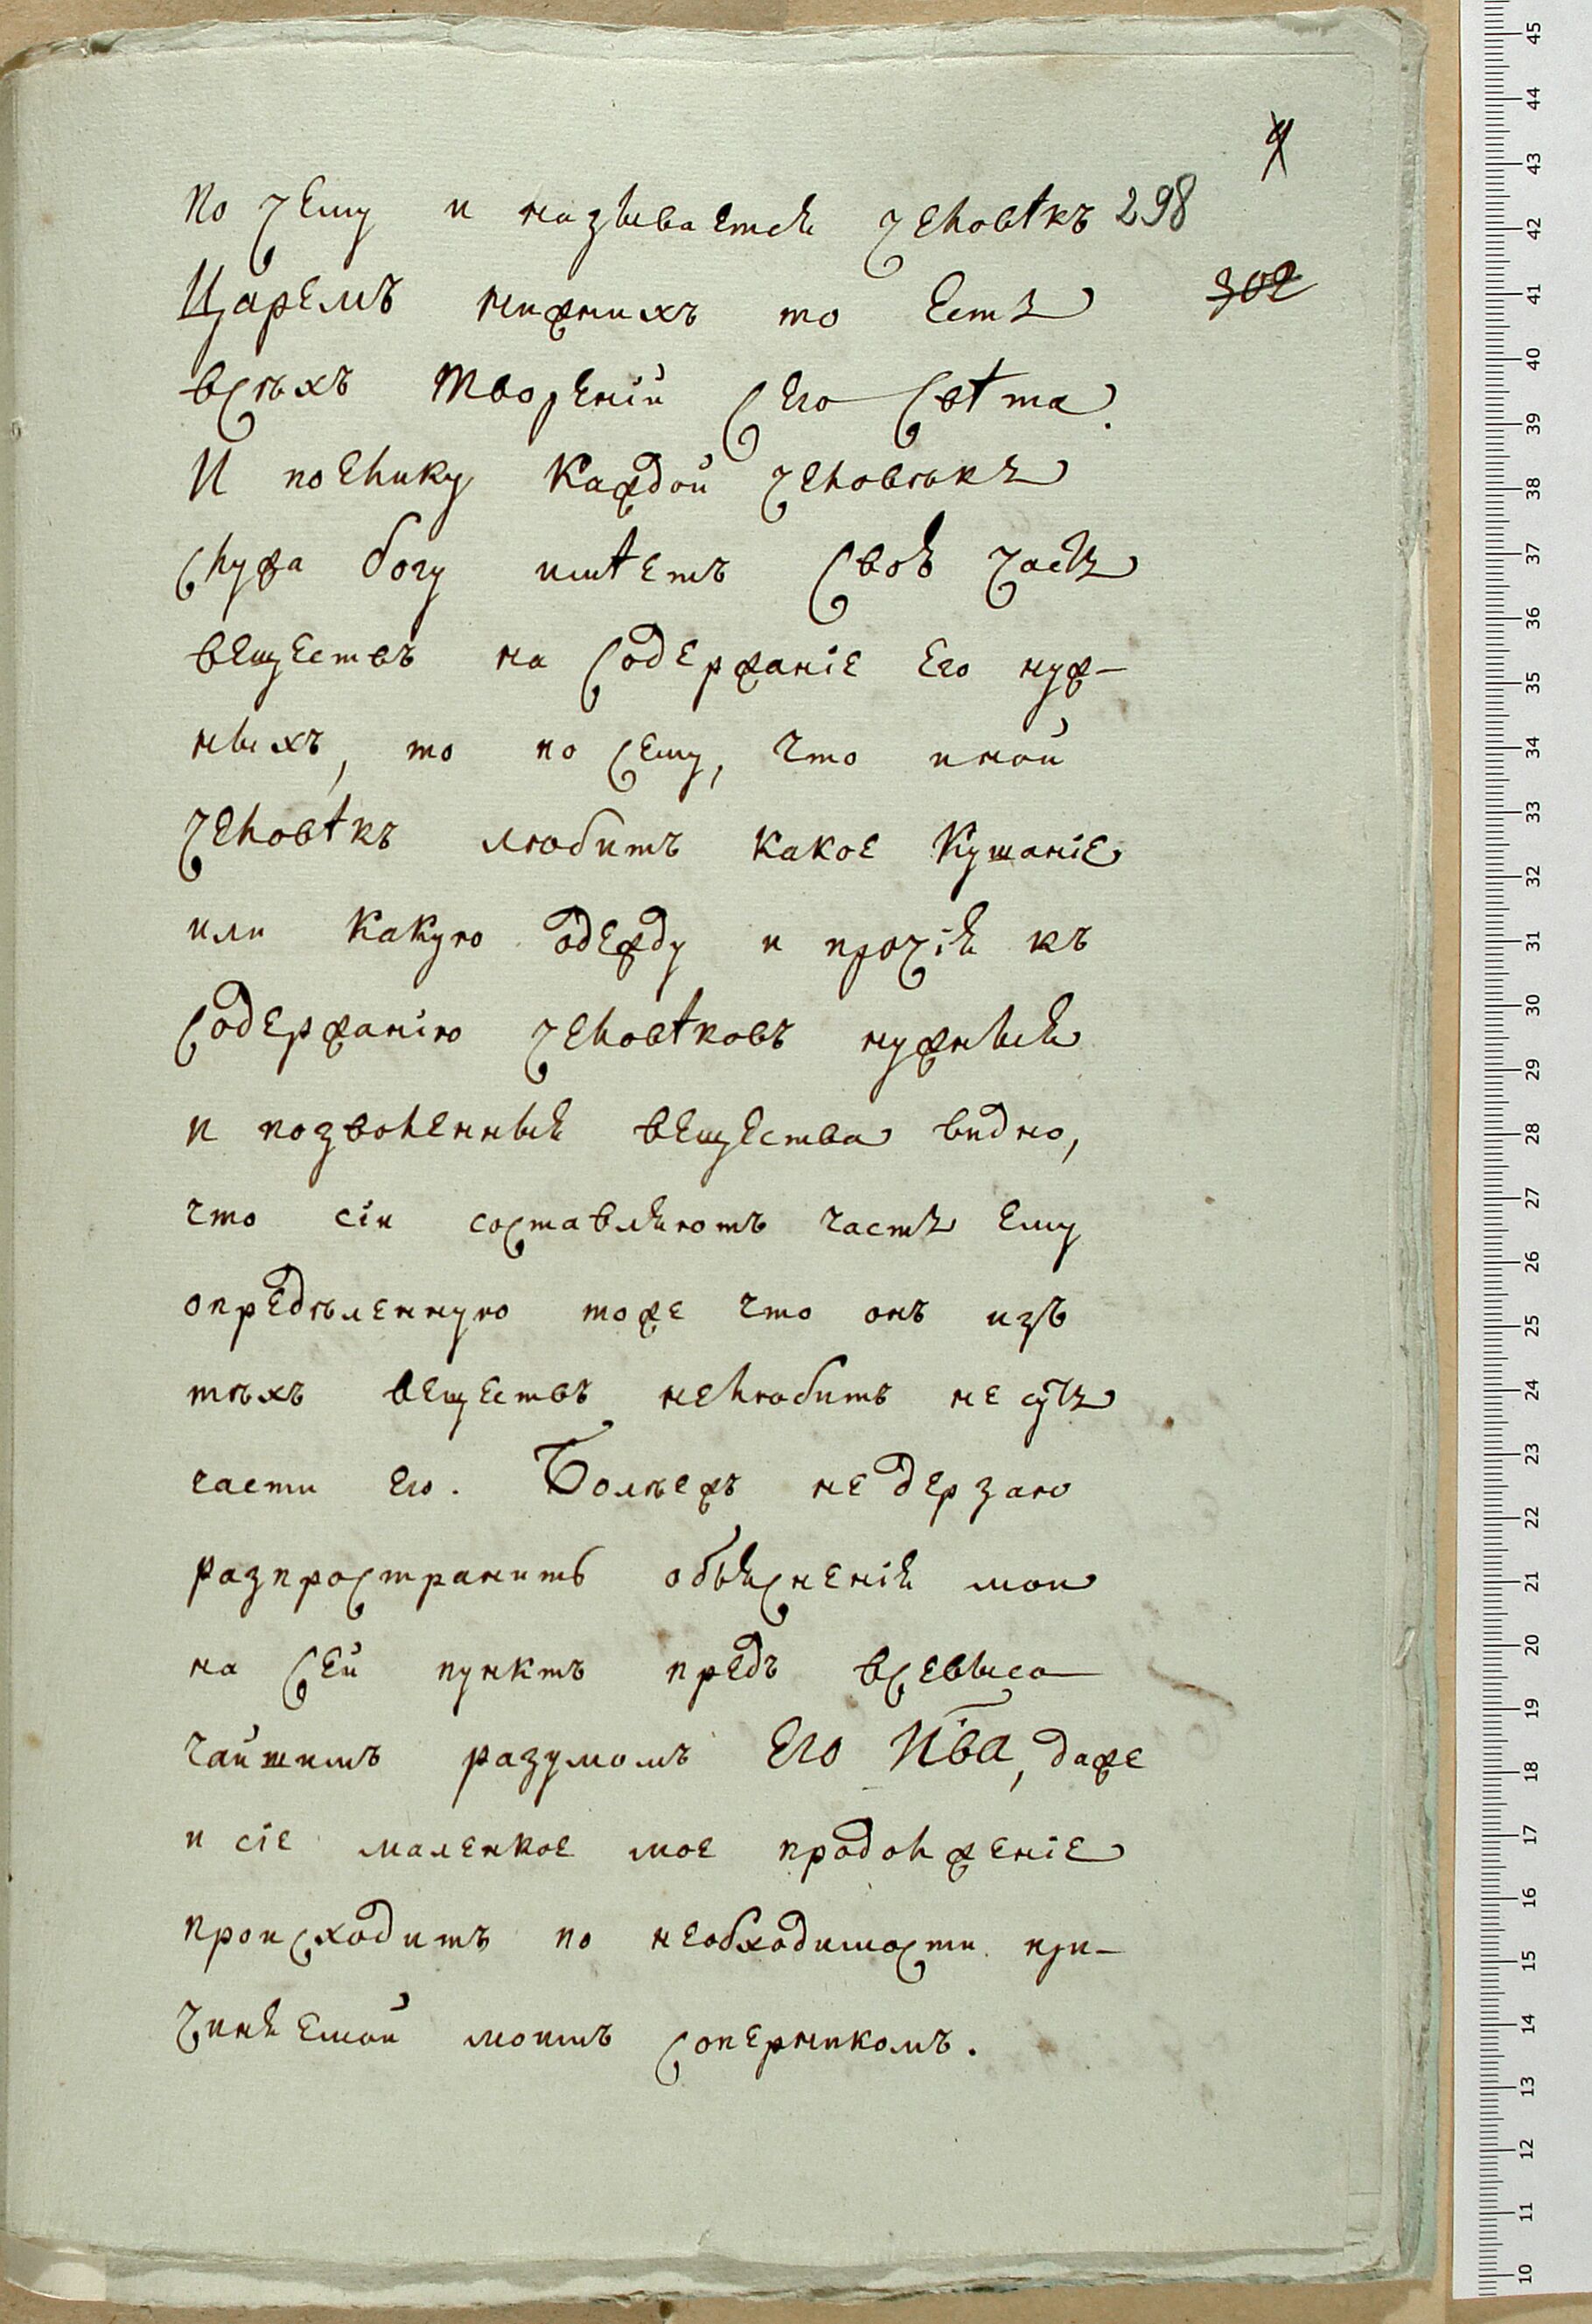 9
по чему и называется человѣкъ 298
Царемъ нижнихъ то есть 302
всѣхъ твореній сего свѣта.
И поелику каждой человѣкъ
служа богу имѣетъ своя часть
веществъ на содержаніе его нуж-
ныхъ, то по сему, что иной
человѣкъ любитъ какое кушаніе
или какую одежду и прочія къ
содержанію человѣковъ нужныя
и позволенныя вещества видно,
что сіи составляютъ часть ему
опредѣленную тоже что онъ изъ
тѣхъ веществъ нелюбитъ не суть
части его. Болѣежъ не дерзаю
разпространить объясненія мои
на сей пунктъ предъ всевысо
чайшимъ разумомъ Его И: Ва, даже
и сіе маленкое мое продолженіе
происходитъ по необходимости при-
чиняемой моимъ соперникомъ.